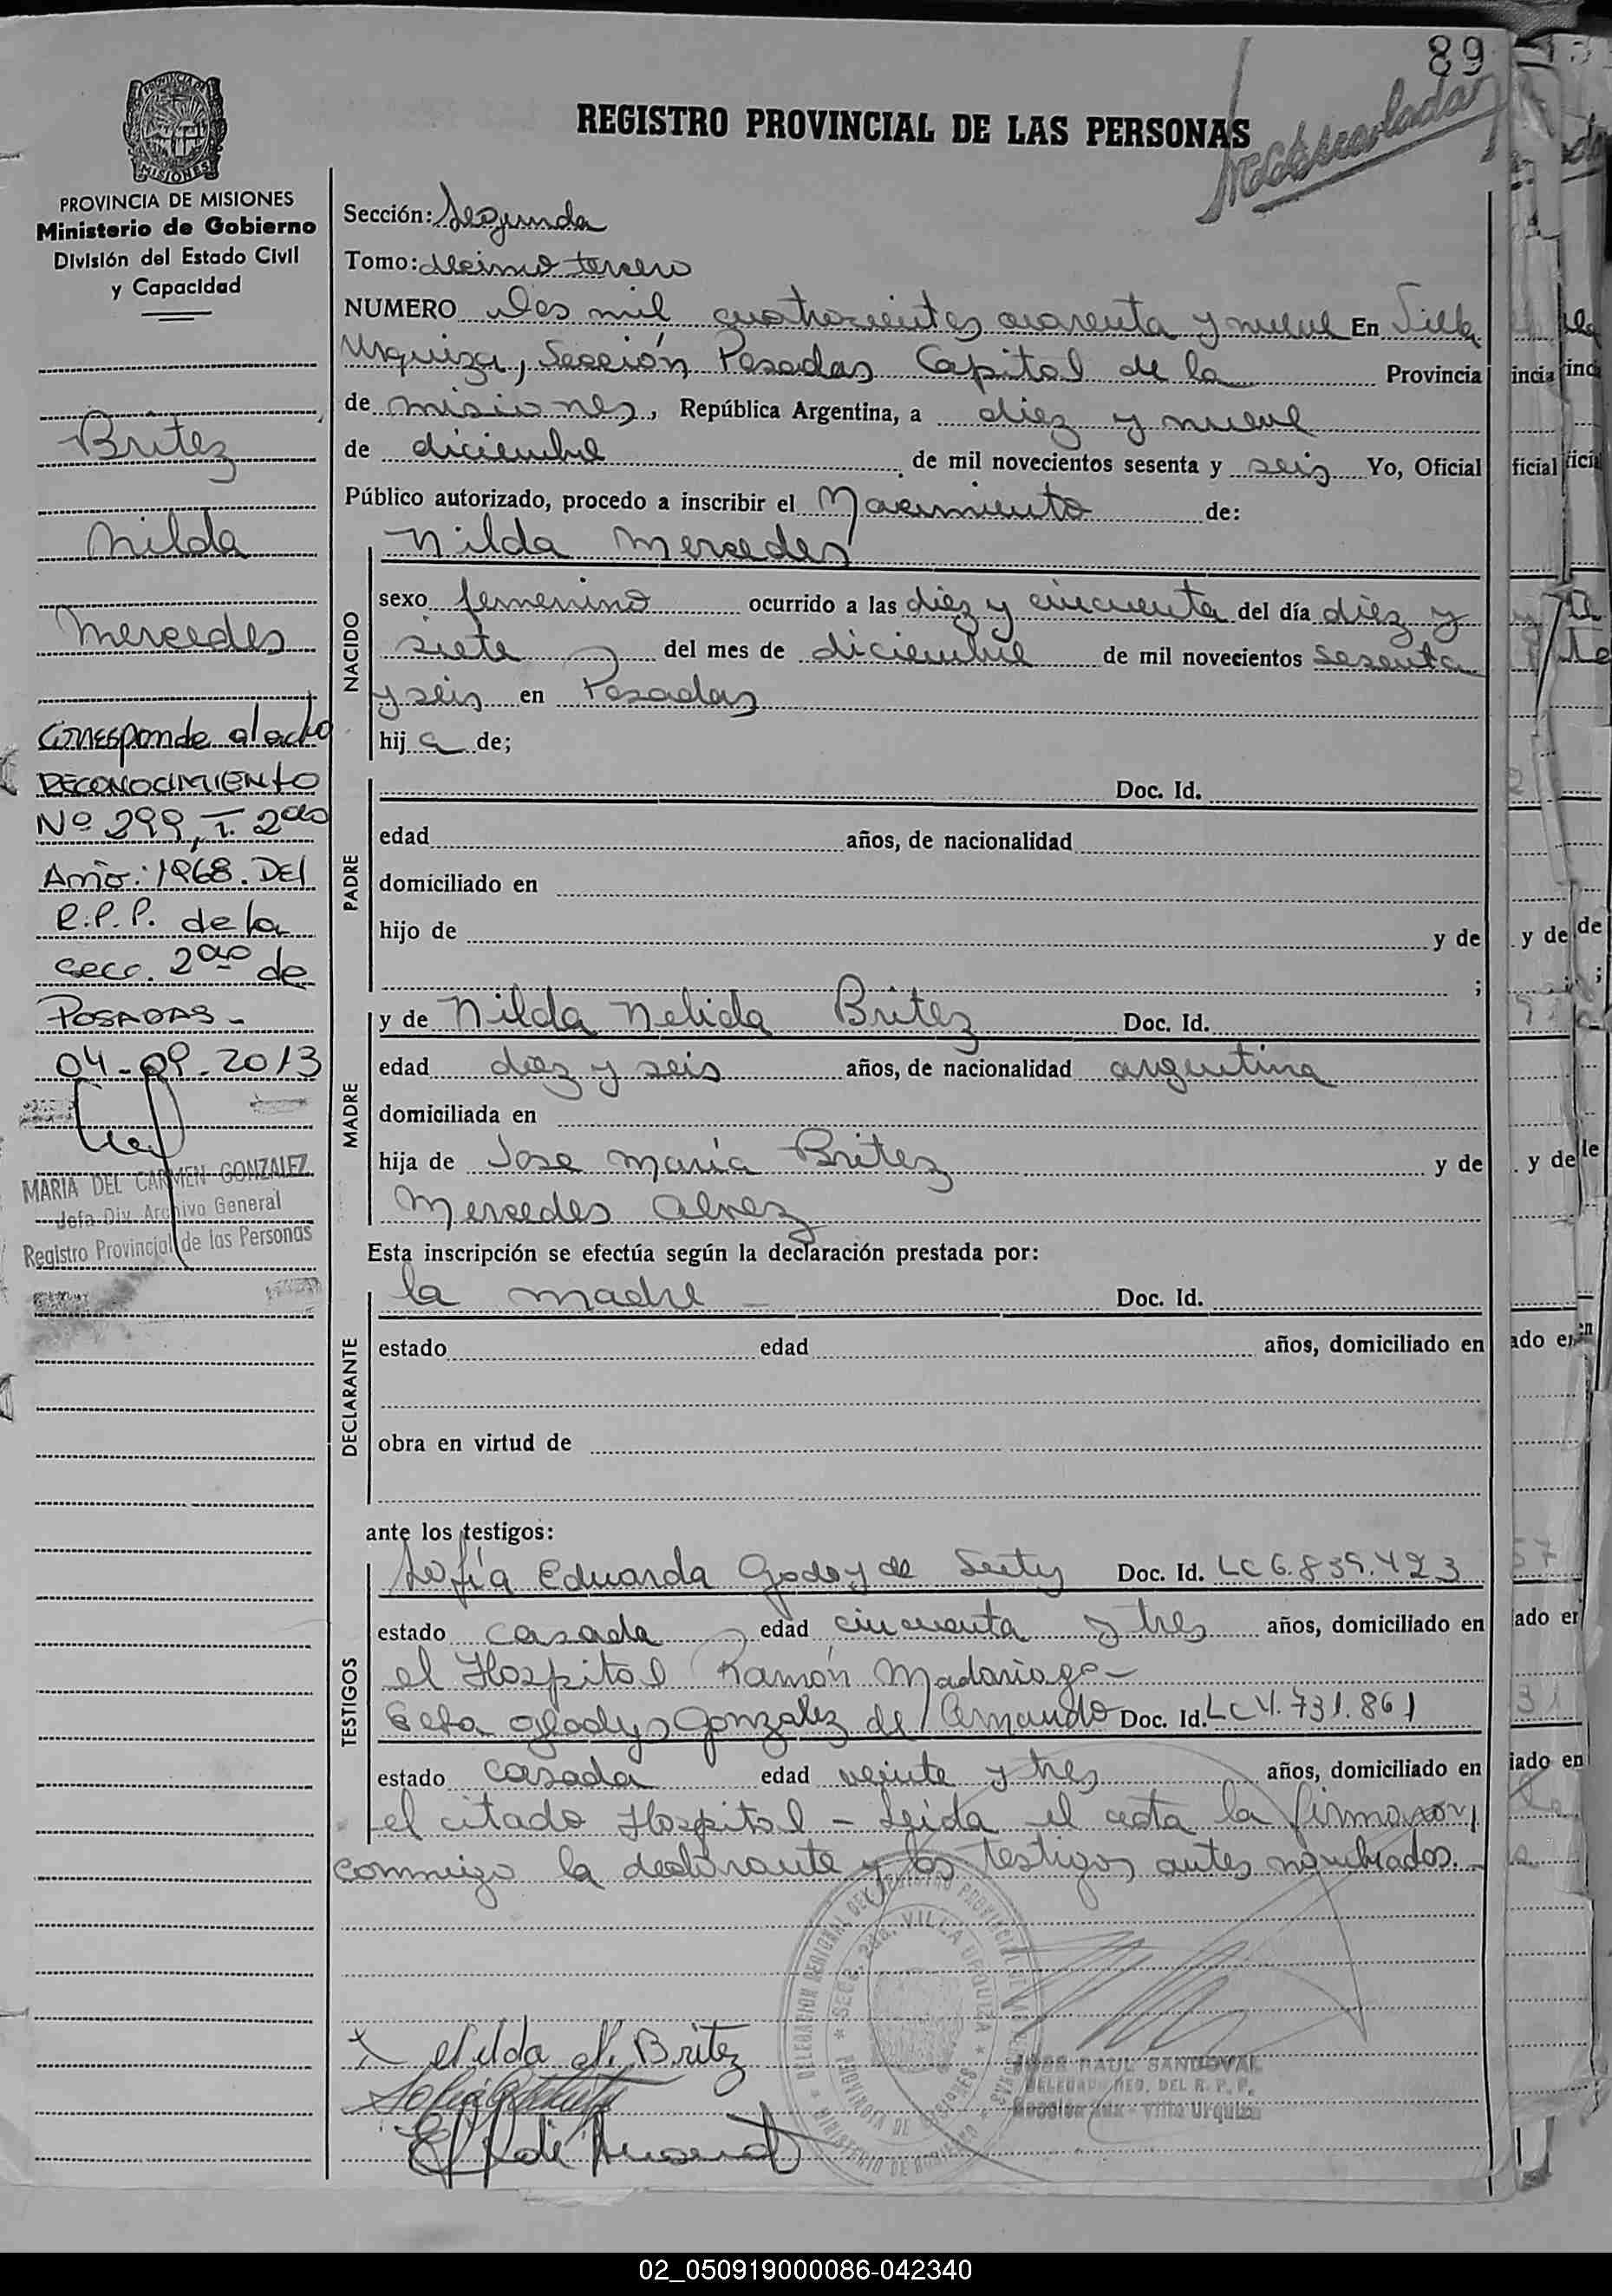 89
REGISTRO PROVINCIAL DE LAS PERSONAS
MISIONES
PROVINCIA DE MISIONES
Ministerio de Gobierno
División del Estado Civil
y Capacidad
Britez
Nilda
Mercedes
Corresponde al acta
RECONOCIMIENTO
Nº 299, T. 2do
Año: 1968. DEl
R.P.P. de la
secc. 2da de
POSADAS -
04-09-2013
MARIA DEL CARMEN GONZALEZ
Jefa Div. Archivo General
Registro Provincial de las Personas
Sección: Segunda
Tomo: decimo tercero
NUMERO Dos mil cuatrocientos cuarenta y nueve En Villa
Urquiza, Sección Posadas Capital de la Provincia
de misiones, República Argentina, a diez y nueve
de diciembre de mil novecientos sesenta y seis Yo, Oficial
Público autorizado, procedo a inscribir el Nacimiento de:
NACIDO
Nilda Mercedes
sexo femenino ocurrido a las diez y cincuenta del día diez y
siete del mes de diciembre de mil novecientos sesenta
y seis en Posadas
hij a de;
PADRE
Doc. Id.
edad años, de nacionalidad
domiciliado en
hijo de y de
;
MADRE
y de Nilda Nelida Britez Doc. Id.
edad diez y seis años, de nacionalidad argentina
domiciliada en
hija de Jose María Britez y de
Mercedes Alvez
Esta inscripción se efectúa según la declaración prestada por:
DECLARANTE
la madre - Doc. Id.
estado edad años, domiciliado en
obra en virtud de
ante los testigos:
TESTIGOS
Sofía Eduarda Godoy de Doc. Id. LC 6.839.423
estado casada edad cincuenta y tres años, domiciliado en
el Hospital Ramón Madariaga -
Gladys Gonzalez de Doc. Id. LC 4.731.861
estado casada edad veinte y tres años, domiciliado en
el citado Hospital - Leida el acta la firmaron
conmigo la declarante y los testigos antes nombrados. -
Nilda N. Britez
RAUL SANDOVAL
DELEGADO REG. DEL R. P. P.
Sección Aux - Villa Urquiza
02_050919000086-042340